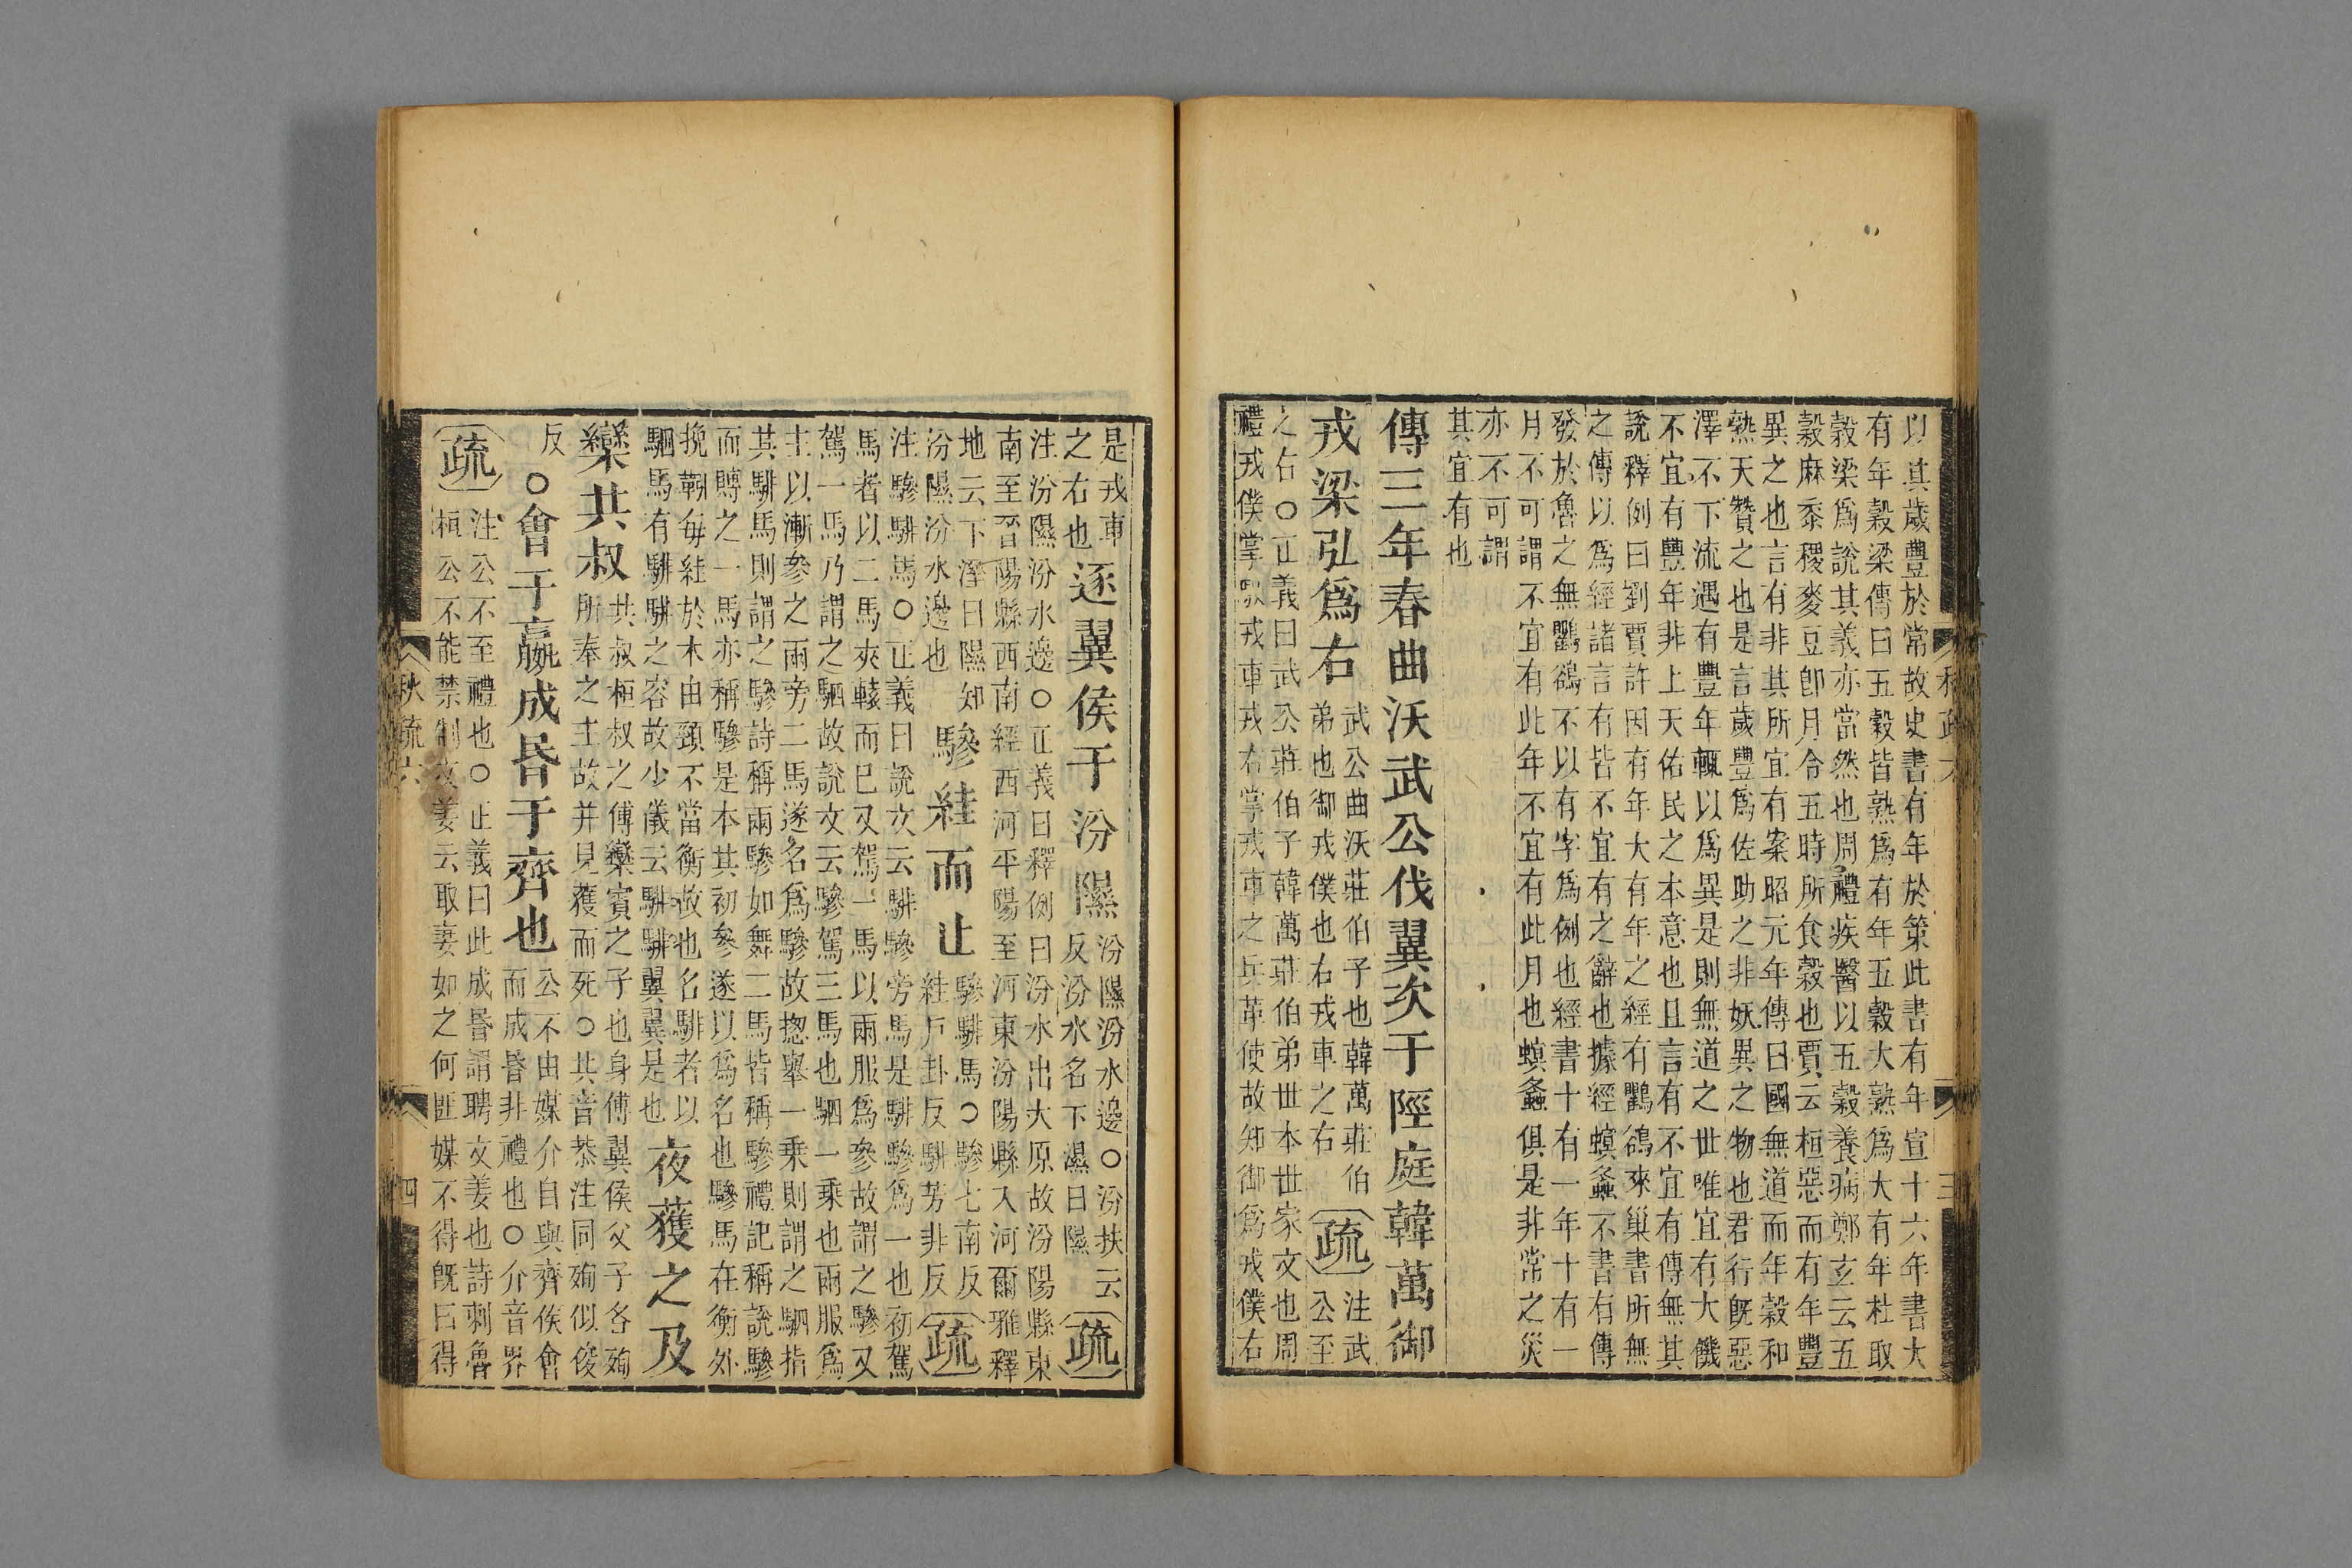 以其歲豐於常故史書有年於策此書有年宣十六年書大
有年穀梁傳曰五穀皆熟爲有年五穀大熟爲大有年杜取
穀梁爲說其義亦當然也周禮疾醫以五穀養病鄭玄云五
穀麻黍稷麥豆卽月令五時所食穀也賈云桓惡而有年豐
異之也言有非其所宜有案昭元年傳曰國無道而年穀和
熟天贊之也是言歲豐爲佐助之非妖異之物也君行旣惡
澤不下流遇有豐年輒以爲異是則無道之世唯宜有大饑
不宜有豐年非上天佑民之本意也且言有不宜有傳無其
說釋例曰劉賈許因有年大有年之經有鸜鵒來巢書所無
之傳以爲經諸言有皆不宜有之辭也據經螟螽不書有傳
發於魯之無鸜鵒不以有字爲例也經書十有一年十有一
月不可謂不宜有此年不宜有此月也螟螽俱是非常之災
亦不可謂
其宜有也
傳三年春曲沃武公伐翼次于陘庭韓萬御
戎梁弘爲右
武公曲沃莊伯子也韓萬莊伯
弟也御戎僕也右戎車之右
疏
注武
公至
之右○正義曰武公莊伯子韓萬莊伯弟世本世家文也周
禮戎僕掌馭戎車戎右掌戎車之兵革使故知御爲戎僕右
三
是戎車
之右也
逐翼侯于汾隰
汾隰汾水邊○汾扶云
反汾水名下濕曰隰
疏
注汾隰汾水邊○正義曰釋例曰汾水出大原故汾陽縣東
南至晉陽縣西南經西河平陽至河東汾陽縣入河爾雅釋
地云下溼曰隰知
汾隰汾水邊也
驂絓而止
驂騑馬○驂七南反
絓戶卦反騑芳非反
疏
注驂騑馬○正義曰說文云騑驂旁馬是騑驂爲一也初駕
馬者以二馬夾轅而已又駕一馬以兩服爲參故謂之驂又
駕一馬乃謂之駟故說文云驂駕三馬也駟一乘也兩服爲
主以漸參之兩旁二馬遂名爲驂故揔舉一乘則謂之駟指
其騑馬則謂之驂詩稱兩驂如舞二馬皆稱驂禮記稱說驂
而賻之一馬亦稱驂是本其初參遂以爲名也驂馬在衡外
挽靷每絓於木由頸不當衡故也名騑者以
駟馬有騑騑之容故少儀云騑騑翼翼是也
夜獲之及
欒共叔
共叔桓叔之傅欒賓之子也身傅翼侯父子各殉
所奉之主故并見獲而死○其音恭注同殉似俊
反
○會于嬴成昏于齊也
公不由媒介自與齊侯會
而成昏非禮也○介音界
疏
注公不至禮也○正義曰此成昏謂聘文姜也詩刺魯
桓公不能禁制文姜云取妻如之何匪媒不得旣曰得
秋疏六
四